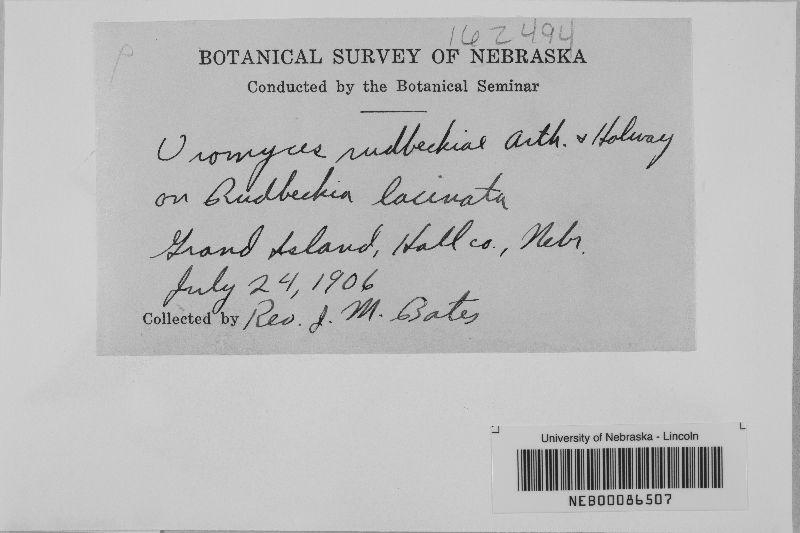 162494
P
BOTANICAL SURVEY OF NEBRASKA
Conducted by the Botanical Seminar
Uromyces rudbeckiae Arth. & Holway
on Rudbeckia lacinata
Grand Island, Hall co., Nebr.
July 24, 1906
Collected by Rev. J. M. Bates
University of Nebraska - Lincoln
NEB00086507